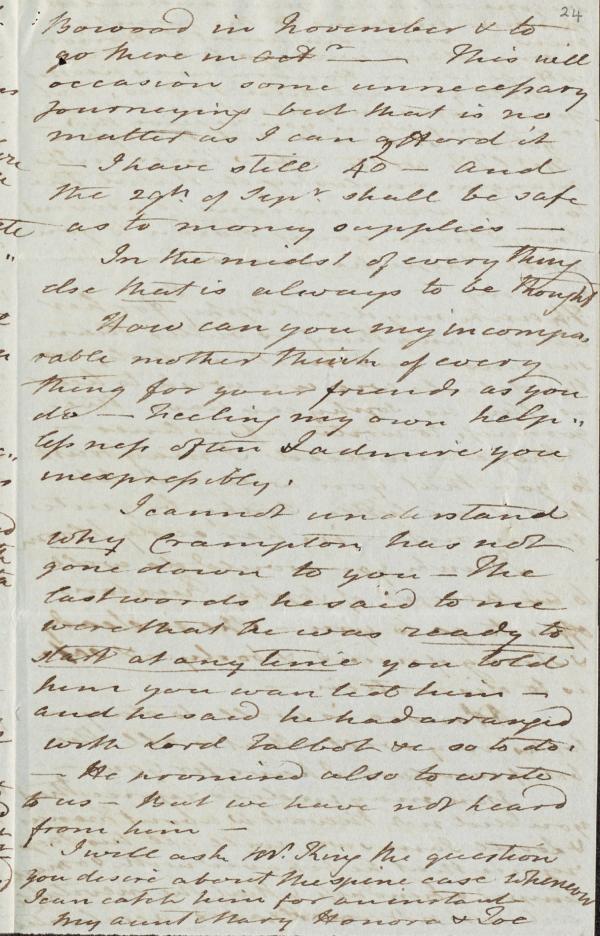 24
Bowood in November & to
go there in Octr — This will
occasion some unnecessary
journeying but that is no
matter as I can afford it
— I have still 40 — and
the 29th of Sepr shall be safe
as to money supplies —
In the midst of every thing
else that is always to be thought
How can you my incompa„
rable mother think of every
thing for your friends as you
do — Feeling my own help„
lessness often I admire you
inexpressibly.
I cannot understand
why Crampton has not
gone down to you — The
last words he said to me
were that he was ready to
start at any time you told
him you wanted him —
and he said he had arranged
with Lord Talbot &c so to do.
— He promised also to write
to us — But we have not heard
from him —
I will ask Mr. King the question
you desire about the spine case whenever
I can catch him for an instant
My aunt Mary Honora & Joe